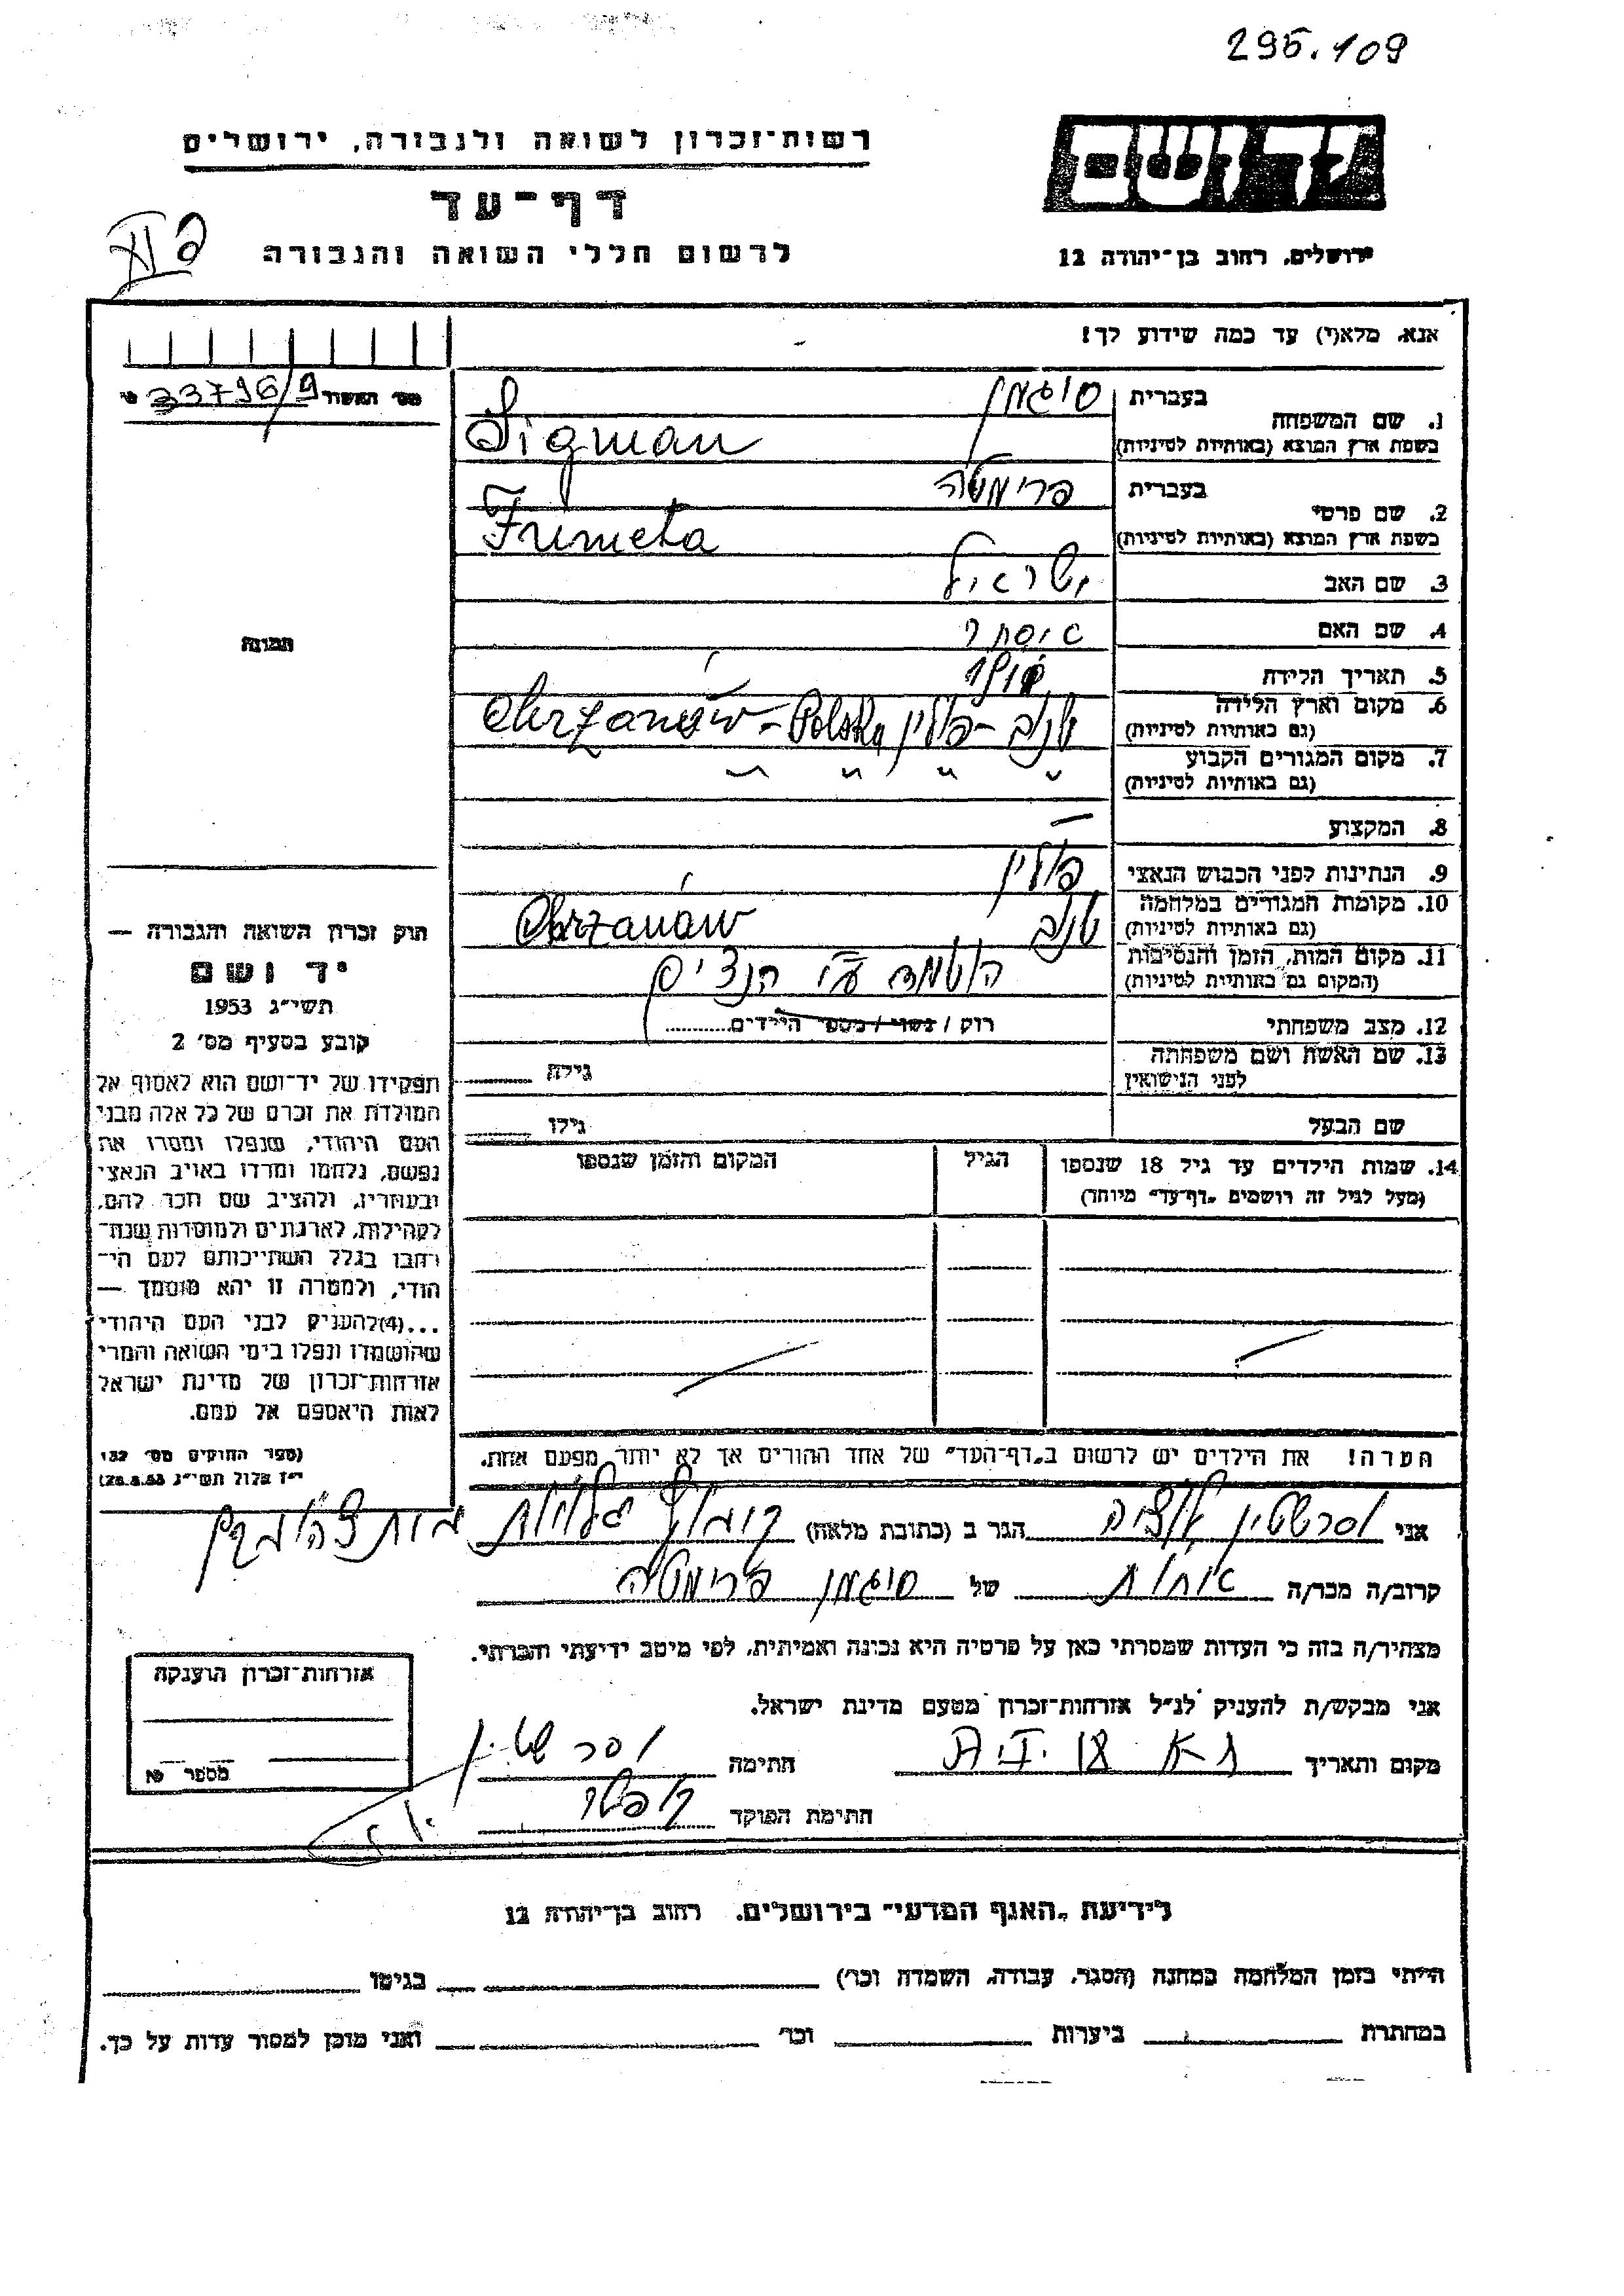 295.109
רשות־זכרון לשואה ולגבורה, ירושלים
יד ושם
דף־עד
לרשום חללי השואה והגבורה
ירושלים, רחוב בן־יהודה 12
אנא, מלא(י) עד כמה שידוע לך!
מס׳ האשור 33796/9
1. שם המשפחה
בעברית סיגמן
בשפת ארץ המוצא (באותיות לטיניות) Sigman
2. שם פרטי
בעברית פרימטה
בשפת ארץ המוצא (באותיות לטיניות) Frimeta
3. שם האב ישראל
4. שם האם אסתר
5. תאריך הלידה
6. מקום וארץ הלידה (גם באותיות לטיניות) פולין Chrzanów - Polska
7. מקום המגורים הקבוע (גם באותיות לטיניות) " " "
8. המקצוע —
9. הנתינות לפני הכבוש הנאצי פולין
10. מקומות המגורים במלחמה (גם באותיות לטיניות) Chrzanów
11. מקום המות, הזמן והנסיבות (המקום גם באותיות לטיניות) הושמדה ע״י הנצים
12. מצב משפחתי רוק / נשוי / מספר הילדים
13. שם האשה ושם משפחתה לפני הנישואין גילה
שם הבעל גילו
14. שמות הילדים עד גיל 18 שנספו (מעל לגיל זה רושמים „דף־עד״ מיוחד) הגיל המקום והזמן שנספו
הערה! את הילדים יש לרשום ב„דף־העד״ של אחד ההורים אך לא יותר מפעם אחת.
תמונה
חוק זכרון השואה והגבורה —
יד ושם
תשי״ג 1953
קובע בסעיף מס׳ 2
תפקידו של יד־ושם הוא לאסוף אל
המולדת את זכרם של כל אלה מבני
העם היהודי, שנפלו ומסרו את
נפשם, נלחמו ומרדו באויב הנאצי
ובעוזריו, ולהציב שם וזכר להם,
לקהילות, לארגונים ולמוסדות שנח־
רבו בגלל השתייכותם לעם הי־
הודי, ולמטרה זו יהא מוסמך —
...(4)להעניק לבני העם היהודי
שהושמדו ונפלו בימי השואה והמרי
אזרחות־זכרון של מדינת ישראל
לאות היאספם אל עמם.
(ספר החוקים מס׳ 132
י״ז אלול תשי״ג 28.8.53)
אני הגר ב (כתובת מלאה) גלויות
קרוב/ה מכר/ה אחות של סיגמן פרימטה
מצהיר/ה בזה כי העדות שמסרתי כאן על פרטיה היא נכונה ואמיתית, לפי מיטב ידיעתי והכרתי.
אני מבקש/ת להעניק לנ״ל אזרחות־זכרון מטעם מדינת ישראל.
מקום ותאריך חתימה
חתימת הפוקד
אזרחות־זכרון הוענקה
מספר
לידיעת „האגף המדעי״ בירושלים, רחוב בן־יהודה 12
הייתי בזמן המלחמה במחנה (הסגר, עבודה, השמדה וכו׳) בגיטו
במחתרת ביערות וכו׳ ואני מוכן למסור עדות על כך.